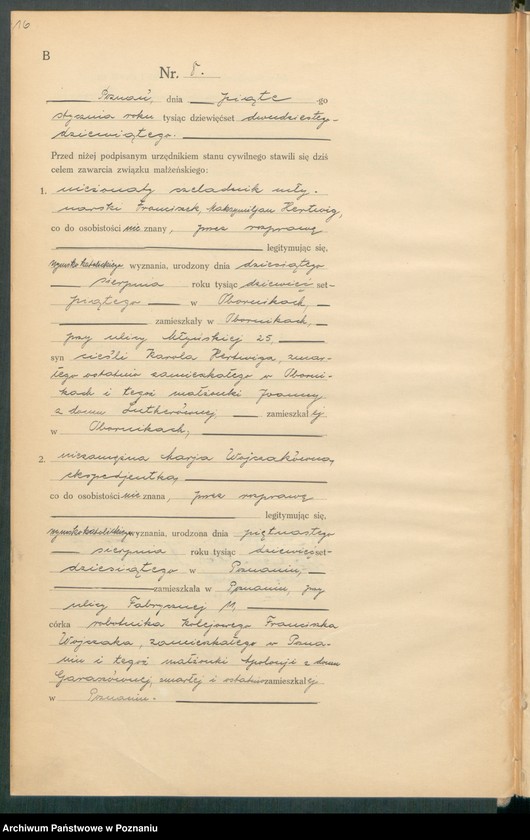 16
B
Nr. 5.
Poznań, dnia piątego
stycznia roku tysiąc dziewięćset dwudziestego
dziewiątego.
Przed niżej podpisanym urzędnikiem stanu cywilnego stawili się dziś
celem zawarcia związku małżeńskiego:
1. nieżonaty czeladnik mły-
narski Franciszek, Maksymiljan Hertwig,
co do osobistości nie znany, przez rozprawę
legitymując się,
rzymsko katolickiego wyznania, urodzony dnia dziesiątego
sierpnia roku tysiąc dziewięćset-
piątego w Obornikach,
zamieszkały w Obornikach,
przy ulicy Młyńskiej 25,
syn cieśli Karola Hertwiga, zmar-
łego ostatnio zamieszkałego w Oborni-
kach i tegoż małżonki Joanny
z domu Lutherównej zamieszkałej
w Obornikach,
2. niezamężna Marja Wojszakówna,
ekspedjentka,
co do osobistości nie znana, przez rozprawę
legitymując się,
rzymsko katolickiego wyznania, urodzona dnia piętnastego
sierpnia roku tysiąc dziewięćset-
dziesiątego w Poznaniu,
zamieszkała w Poznaniu, przy
ulicy Fabrycznej 11,
córka robotnika kolejowego Franciszka
Wojszaka, zamieszkałego w Pozna-
niu i tegoż małżonki Apolonji z domu
zmarłej i ostatnio zamieszkałej
w Poznaniu.
Archiwum Państwowe w Poznaniu